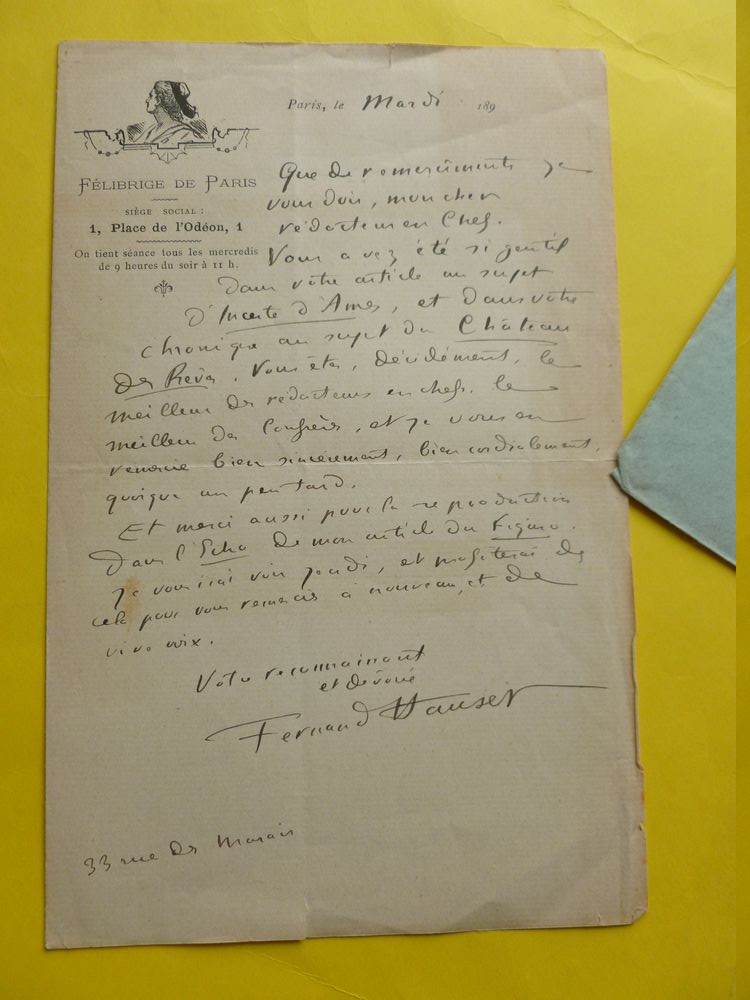 Paris, le Mardi 189
FÉLIBRIGE DE PARIS
SIÈGE SOCIAL :
1, Place de l'Odéon, 1
On tient séance tous les mercredis
de 9 heures du soir à 11 h.
Que de remerciements je
vous dois, mon cher
rédacteur en Chef.
Vous avez été si gentil
dans votre article au sujet
d'Inceste d'Ames, et dans votre
chronique au sujet du Château
des Rêves. Vous êtes, décidément, le
meilleur des rédacteurs en chefs, le
meilleur des Confrères, et je vous en
remercie bien sincèrement, bien cordialement,
quoique un peu tard.
Et merci aussi pour la reproduction
dans l'Echo de mon article du Figaro.
Je vous irai voir jeudi, et profiterai de
cela pour vous remercier à nouveau, et de
vive voix.
Votre reconnaissant
et dévoué
Fernand Hauser
33 rue des Marais